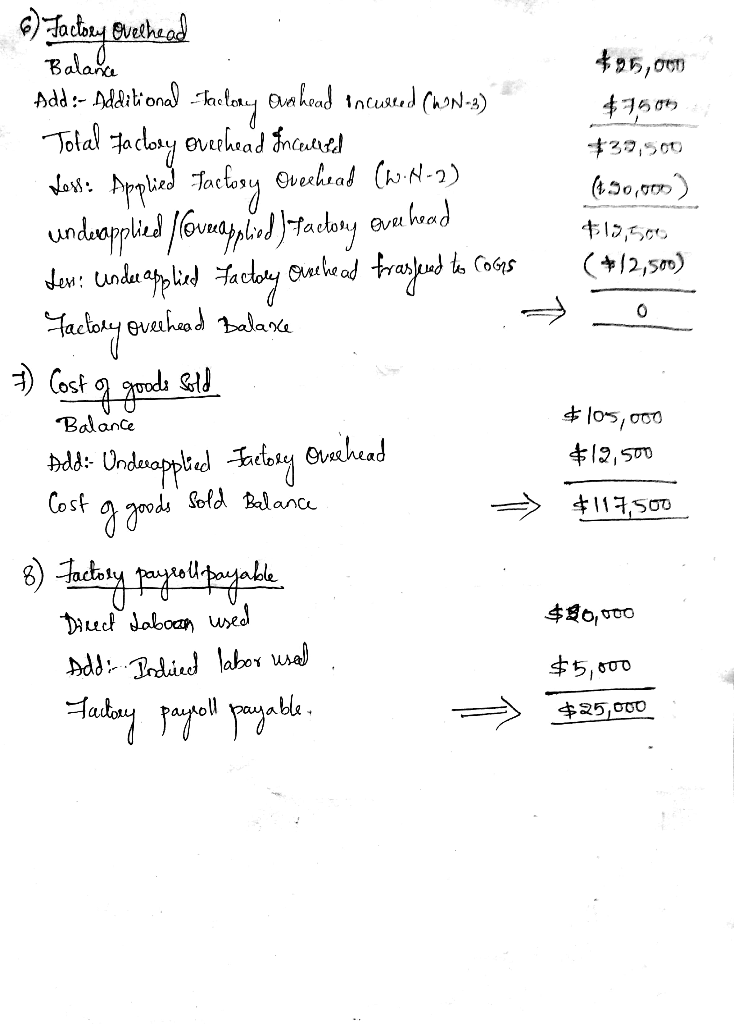 6) Factory Overhead
Balance $25,000
Add:- Additional Factory Overhead incurred (WN-3) $7,500
Total Factory overhead Incurred $32,500
Less: Applied Factory Overhead (W.N-2) ($20,000)
underapplied/(Overapplied) Factory overhead $12,500
Less: Underapplied Factory Overhead trasfered to COGS ($12,500)
Factory overhead Balance ⇒ 0
7) Cost of goods Sold
Balance $105,000
Add:- Underapplied Factory Overhead $12,500
Cost of goods Sold Balance ⇒ $117,500
8) Factory payroll payable
Direct Labour used $20,000
Add:- Indirect labor used $5,000
Factory payroll payable. ⇒ $25,000